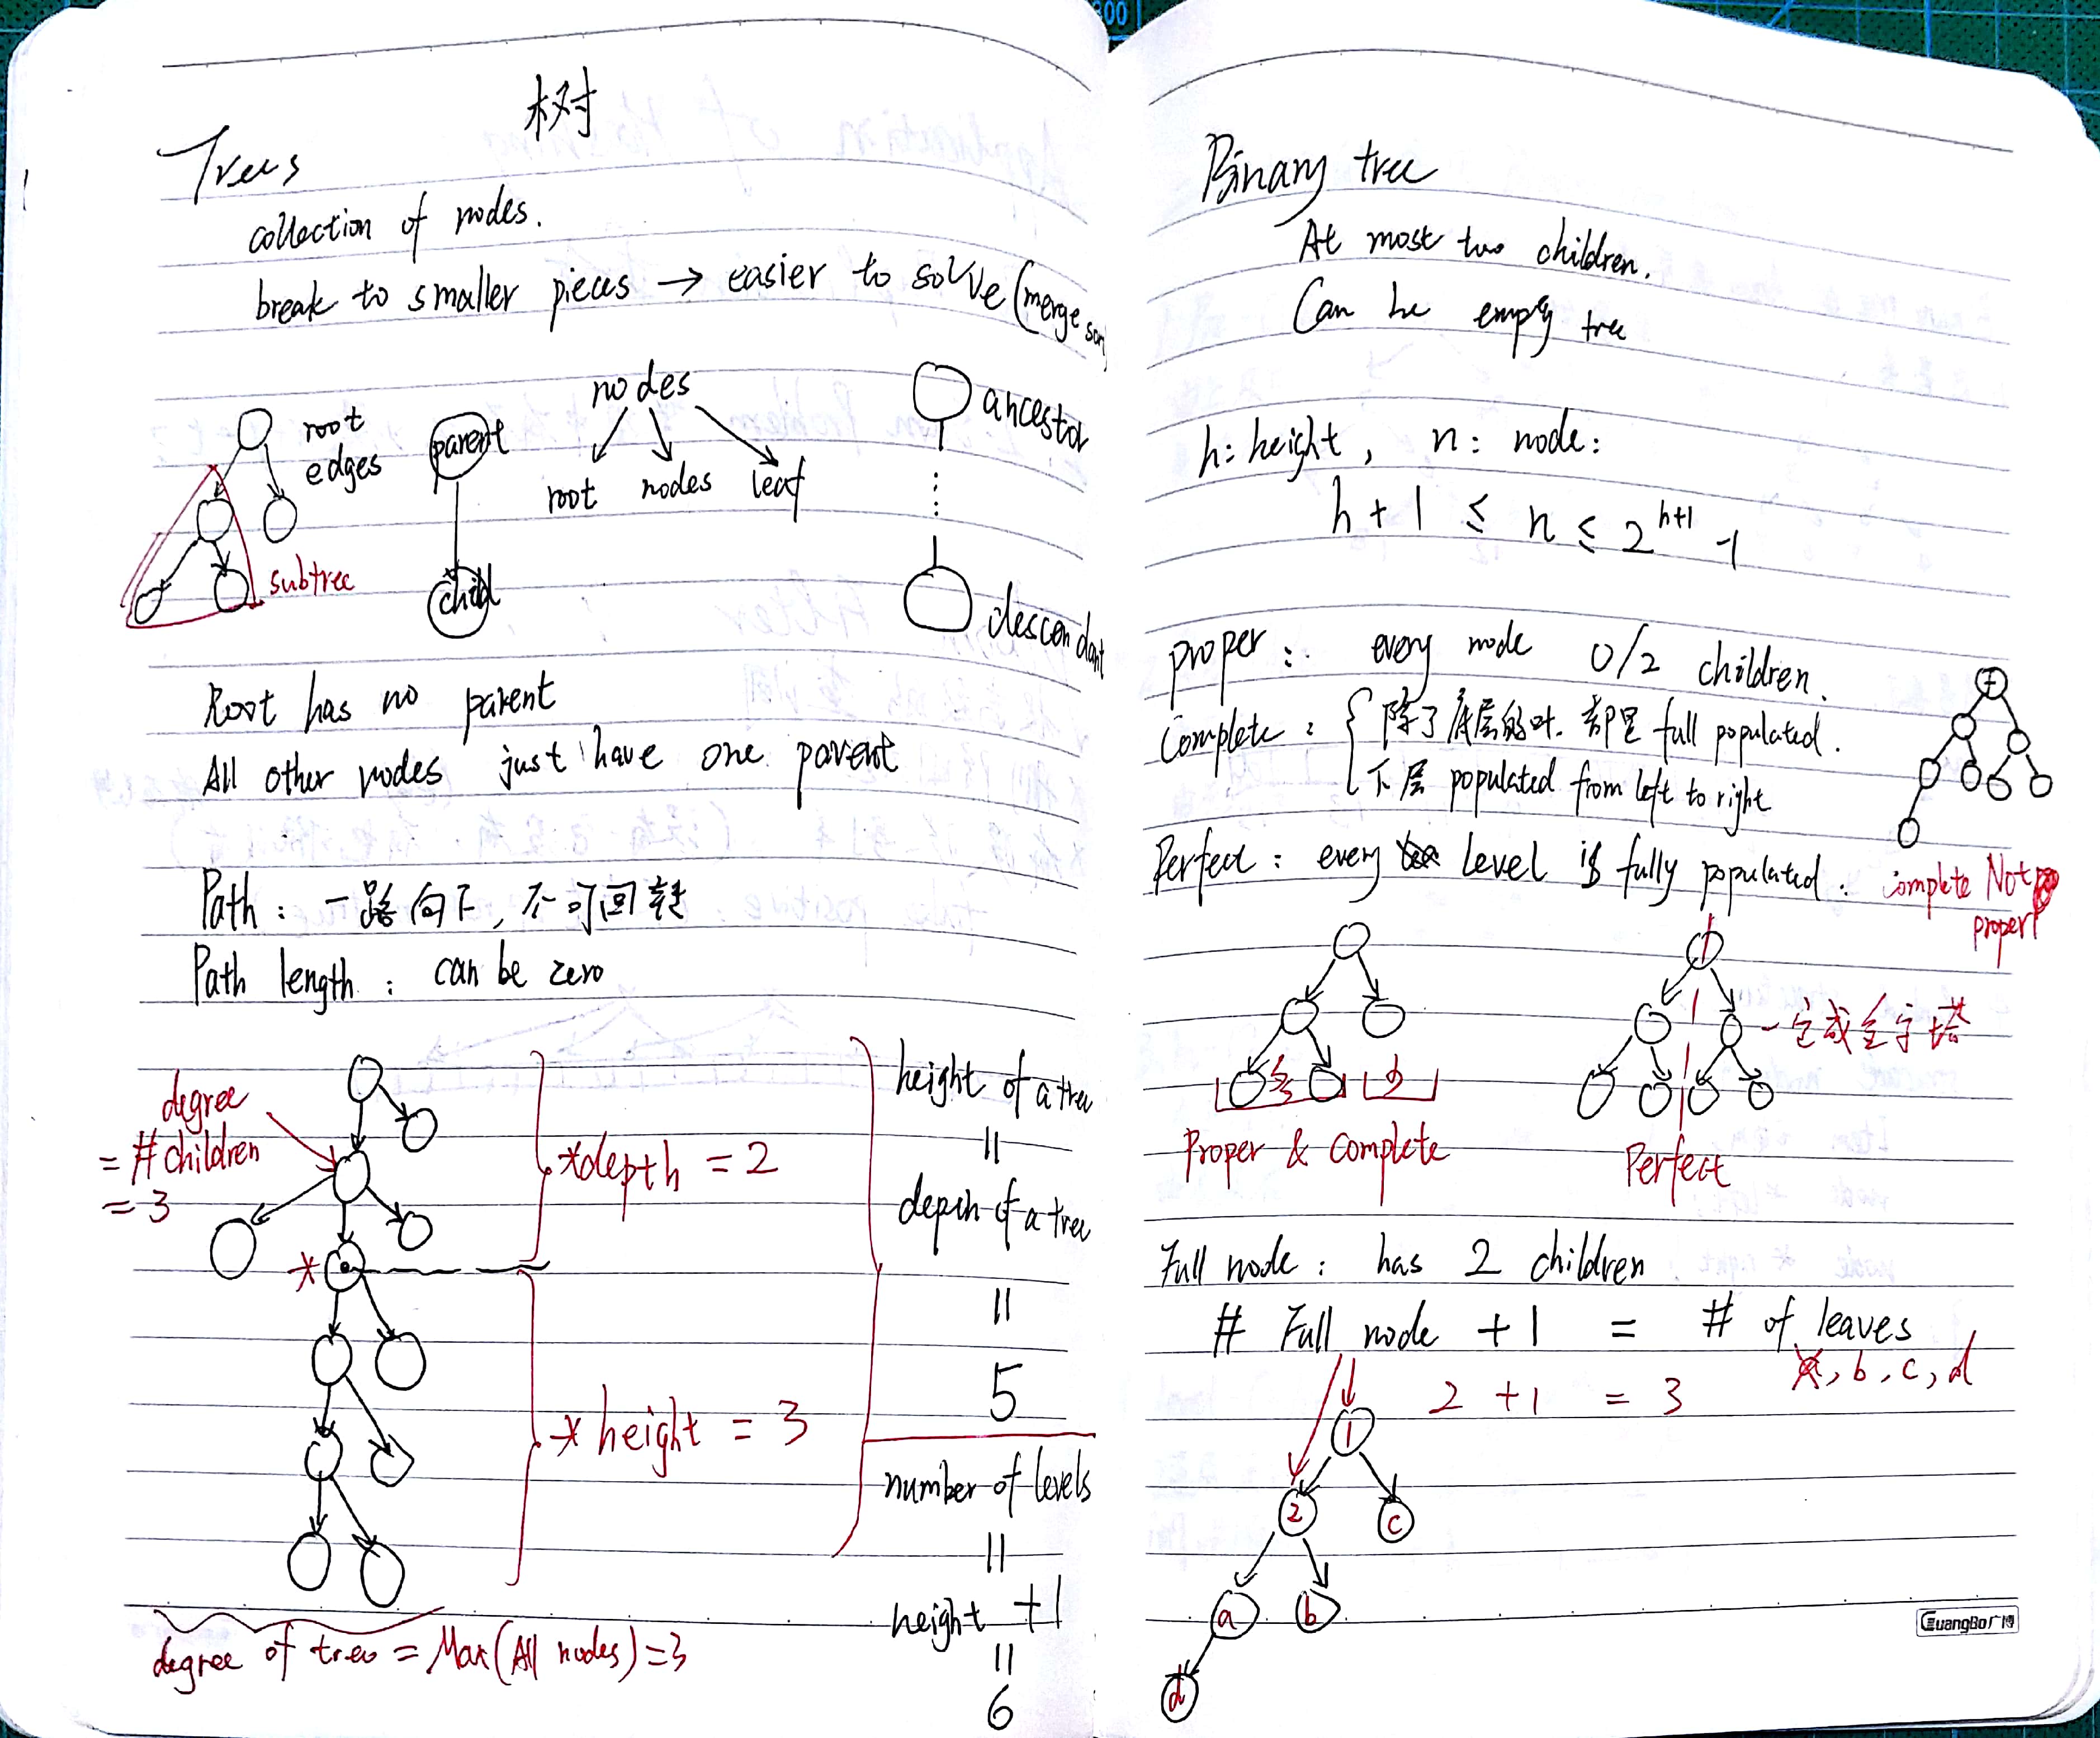 树
Trees
collection of nodes.
break to smaller pieces → easier to solve (merge sort
root
edges
subtree
parent
child
nodes
root nodes leaf
ancestor
descendant
Root has no parent
All other nodes just have one parent
Path: 一路向下, 不可回走
Path length: can be zero
degree
= #children
= 3
*
*depth = 2
*height = 3
height of a tree
=
depth of a tree
=
5
number of levels
=
height +1
=
6
degree of tree = Max(All nodes)=3
Binary tree
At most two children.
Can be empty tree
h: height, n: node:
h+1 ≤ n ≤ 2^{h+1} -1
proper: every node 0/2 children.
Complete: { 除了底层的叶. 都是 full populated.
下层 populated from left to right
Perfect: every Level is fully populated.
complete Not
proper
多 少
Proper & Complete
一定成金字塔
Perfect
Full node: has 2 children
# Full node +1 = # of leaves
2 +1 = 3
a, b, c, d
1
2
c
a
b
d
GuangBo广博
300